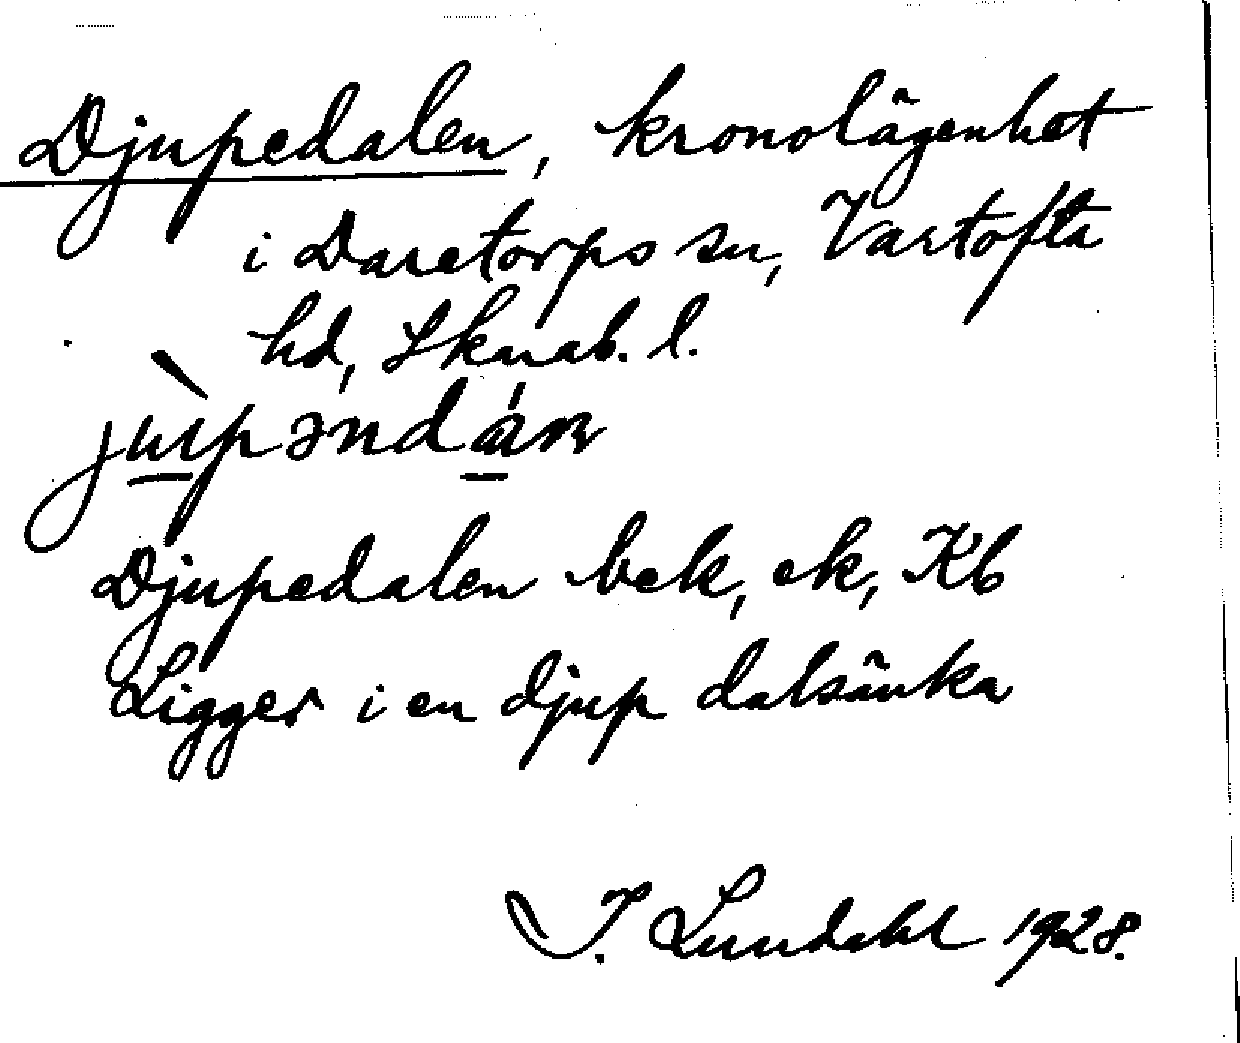 Djupedalen, kronolägenhet
i Daretorps sn, Vartofta
hd, Skarab. l.
Djupedalen bek, ek, Kb
Ligger i en djup dalsänka
I. Lundahl 1928.